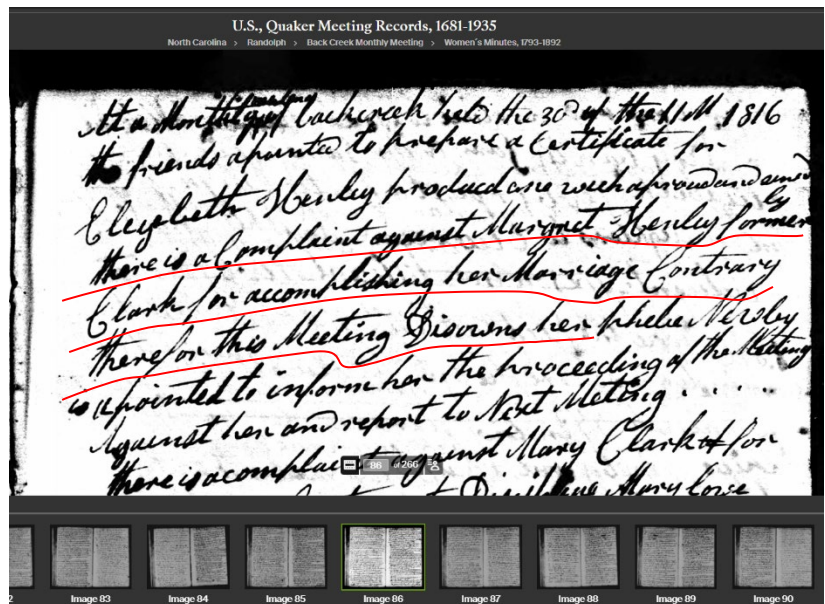 U.S., Quaker Meeting Records, 1681-1935
North Carolina > Randolph > Back Creek Monthly Meeting > Women's Minutes, 1793-1892
At a Monthly of backcreek held the 30d of the 11 M 1816
the friends apointed to prepare a Certificate for
Elezebeth Henley produced one which aproved and
by
there is a Complaint against Margret Henley former
Clark for accomplishing her Marriage Contrary
therefor this Meeting Disowns her phebe Newby
is apointed to inform her the proceeding of the Meeting
Against her and report to Next Metting . . . .
there is a complaint against Mary Clark for
Mary lowe
86 of 266
2
Image 83
Image 84
Image 85
Image 86
Image 87
Image 88
Image 89
Image 90